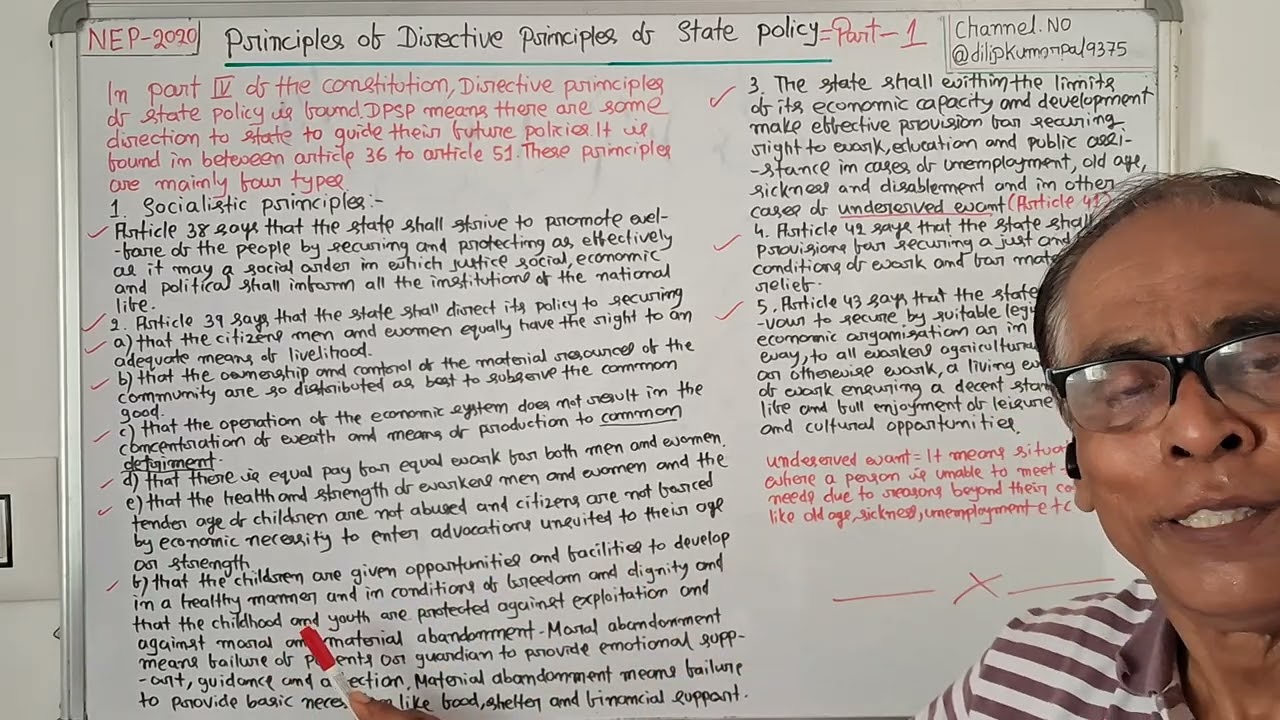 NEP-2020
Principles of Directive Principles of State policy=Part-1
Channel.NO
@dilipkumarpal9375
In part IV of the constitution, Directive principles
of state policy is found. DPSP means there are some
direction to state to guide their future policies. It is
found in between article 36 to article 51. These principles
are mainly four types.
1. Socialistic principles:-
Article 38 says that the state shall strive to promote wel-
-fare of the people by securing and protecting as effectively
as it may a social order in which justice social, economic
and political shall inform all the institutions of the national
life.
2. Article 39 says that the state shall direct its policy to securing
a) that the citizens men and women equally have the right to an
adequate means of livelihood.
b) that the ownership and control of the material resources of the
community are so distributed as best to subserve the common
good.
c) that the operation of the economic system does not result in the
concentration of weath and means of production to common
detriment.
d) that there is equal pay for equal work for both men and women.
e) that the health and strength of workers men and women and the
tender age of children are not abused and citizens are not forced
by economic necessity to enter advocations unsuited to their age
or strength
f) that the children are given opportunities and facilities to develop
in a healthy manner and in conditions of freedom and dignity and
that the childhood and youth are protected against exploitation and
against moral and material abandonment. Moral abandonment
means failure of parents or guardian to provide emotional supp-
-ort, guidance and affection. Material abandonment means failure
to provide basic neces like food, shelter and financial support.
3. The state shall within the limits
of its economic capacity and development
make effective provision for securing
right to work, education and public assi-
-stance in cases of unemployment, old age,
sickness and disablement and in other
cases of undeserved want (Article 41)
4. Article 42 says that the state shall
provisions for securing a just and
conditions of work and for mate
relief.
5. Article 43 says that the state
-vour to secure by suitable leg
economic organisation or in
way, to all workers agricultura
or otherwise work, a living w
of work ensuring a decent stan
life and full enjoyment of leisure
and cultural opportunities.
undeserved want = It means situa
where a person is unable to meet
needs due to reasons beyond their co
like old age, sickness, unemployment etc